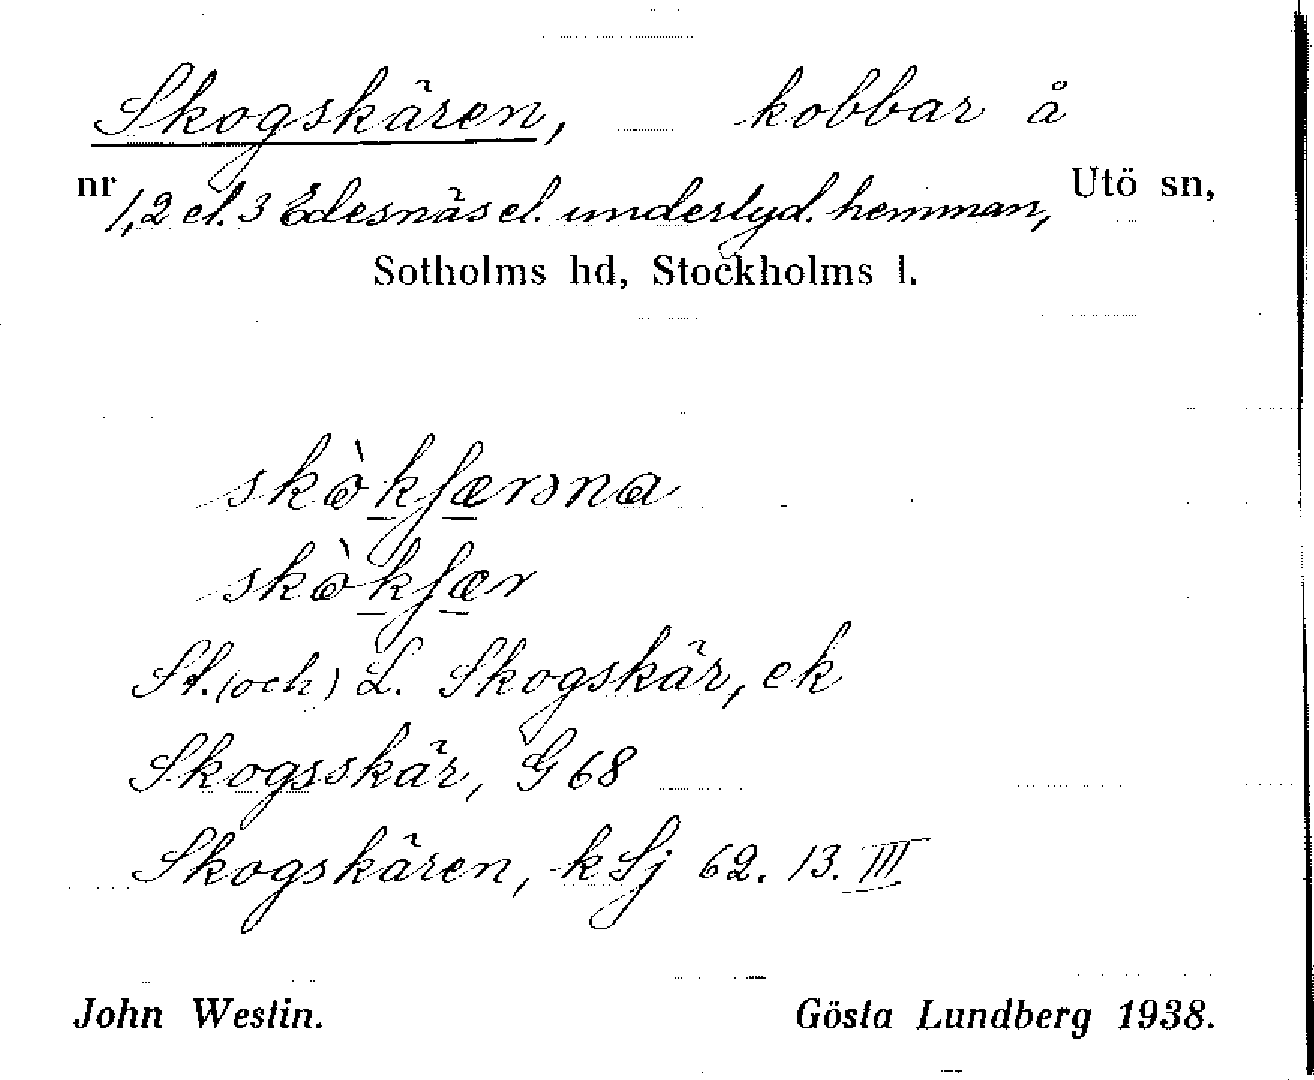 Skogskären, kobbar å
nr 1,2 el. 3 Edesnäs el. underlyd. hemman, Utö sn,
Sotholms hd, Stockholms l.
St. (och) L. Skogskär, ek
Skogsskär, G 68
Skogskären, kSj 62. 13. III
John Westin. Gösta Lundberg 1938.